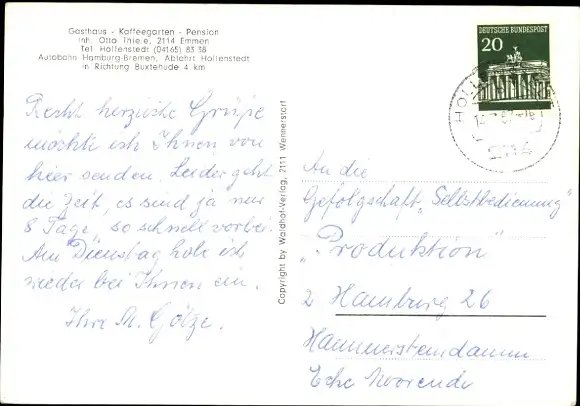 Gasthaus - Kaffeegarten - Pension
Inh. Otto Thiele, 2114 Emmen
Tel. Hollenstedt (04165) 83 38
Autobahn Hamburg-Bremen, Abfahrt Hollenstedt
in Richtung Buxtehude 4 km
DEUTSCHE BUNDESPOST
20
2114
Recht herzliche Grüße
möchte ich Ihnen von
hier senden. Leider geht
die Zeit, es sind ja nur
8 Tage, so schnell vorbei.
Am Dienstag hole ich
wieder bei Ihnen ein.
Ihre M. Götze.
Copyright by Waldhof-Verlag, 2111 Wennerstorf
An die
Gefolgschaft „Selbstbedienung"
„Produktion"
2 Hamburg 26
Hammersteindamm
Ecke Moorende